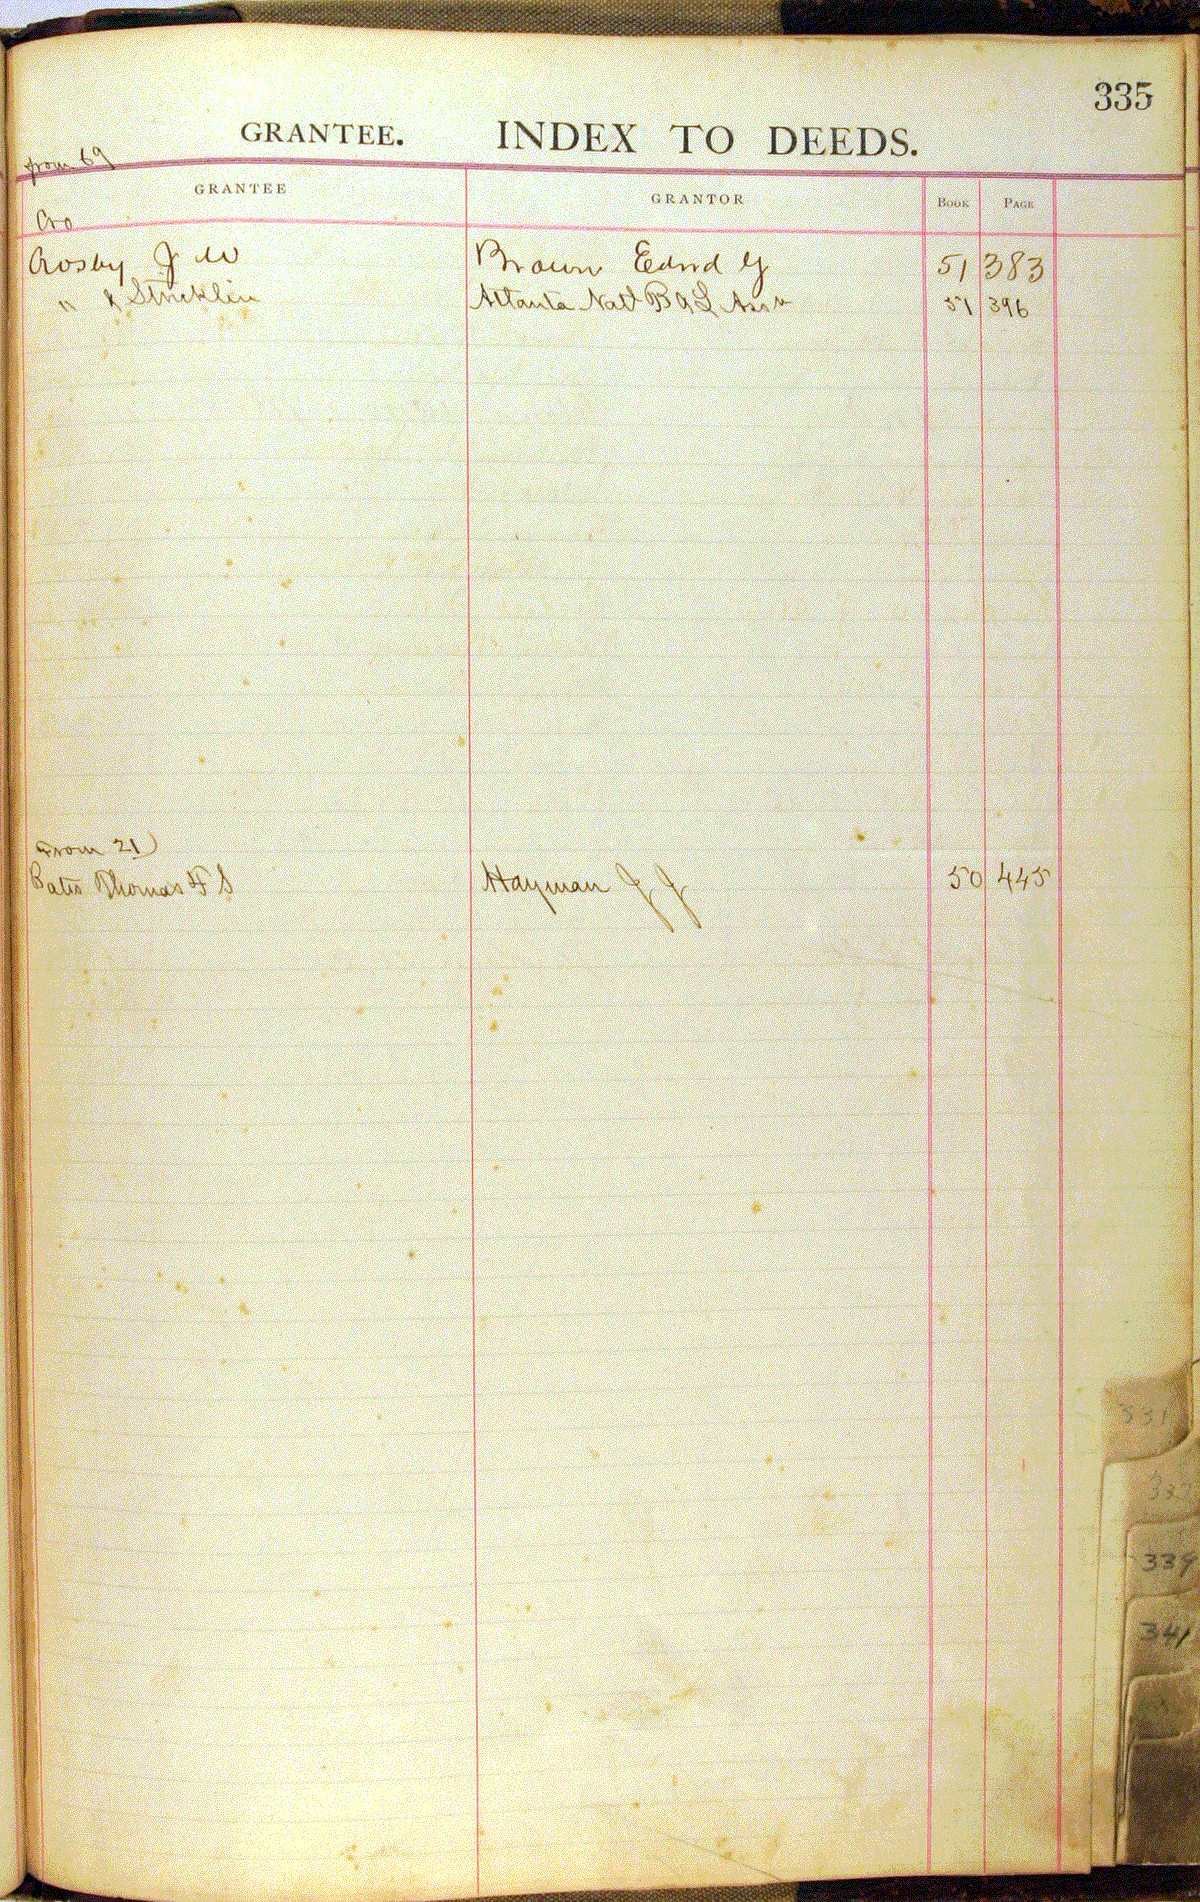 335
GRANTEE. INDEX TO DEEDS.
from 69
GRANTEE GRANTOR BOOK PAGE
Cro
Crosby J W Brown Edwd Y 51 383
" & Stricklin Atlanta Natl B & L Assn 51 396
From 21)
Bates Thomas F S Hayman J J 50 445
331
337
339
341